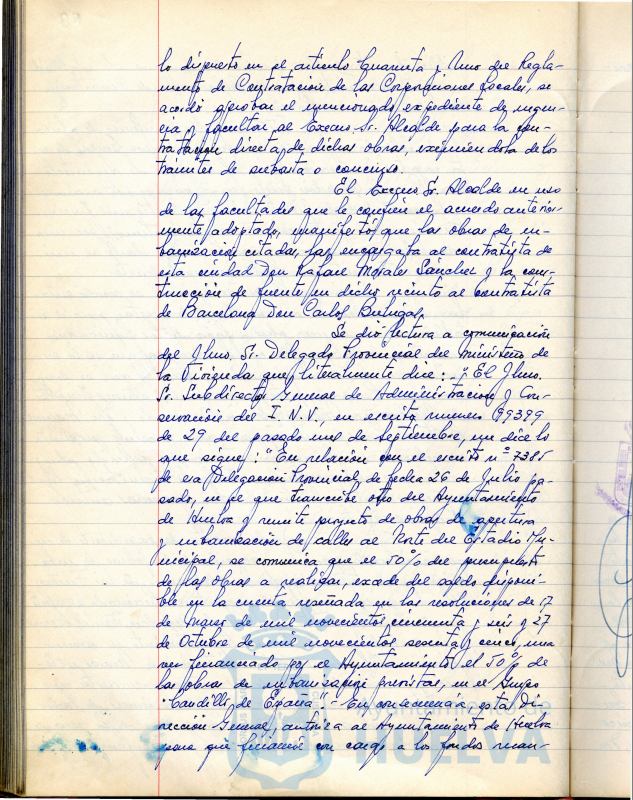 lo dispuesto en el artículo Cuarenta y Uno del Regla-
mento de Contratación de las Corporaciones Locales, se
acordó aprobar el mencionado expediente de urgen-
cia y facultar al Excmo. Sr. Alcalde para la con-
tratación directa de dichas obras, exceptuándola de los
trámites de subasta o concurso.
El Excmo. Sr. Alcalde en uso
de las facultades que le confiere el acuerdo anterior-
mente adoptado, manifestó que las obras de ur-
banización citadas, las encargaba al contratista de
esta ciudad Don Rafael Morales Sánchez y la cons-
trucción de fuente en dicho recinto al contratista
de Barcelona Don Carlos Buhigas.
Se dió lectura a comunicación
del Ilmo. Sr. Delegado Provincial del Ministerio de
la Vivienda que literalmente dice: "El Ilmo.
Sr. Subdirector General de Administración y Con-
servación del I.N.V., en escrito número 99399
de 29 del pasado mes de Septiembre, me dice lo
que sigue: "En relación con el escrito nº 7385
de esa Delegación Provincial de fecha 26 de Julio pa-
sado, en el que transcribe otro del Ayuntamiento
de Huelva y remite proyecto de obras de apertura
y urbanización de calles al Norte del Estadio Mu-
nicipal, se comunica que el 50% del presupuesto
de las obras a realizar, excede del saldo disponi-
ble en la cuenta reseñada en las resoluciones de 17
de Marzo de mil novecientos cincuenta y seis y 27
de Octubre de mil novecientos sesenta y cinco, una
vez financiado por el Ayuntamiento el 50% de
las obras de urbanización previstas, en el Grupo
"Caudillo de España".- En consecuencia, esta Di-
rección General, autoriza al Ayuntamiento de Huelva
para que financie con cargo a los fondos
HUELVA